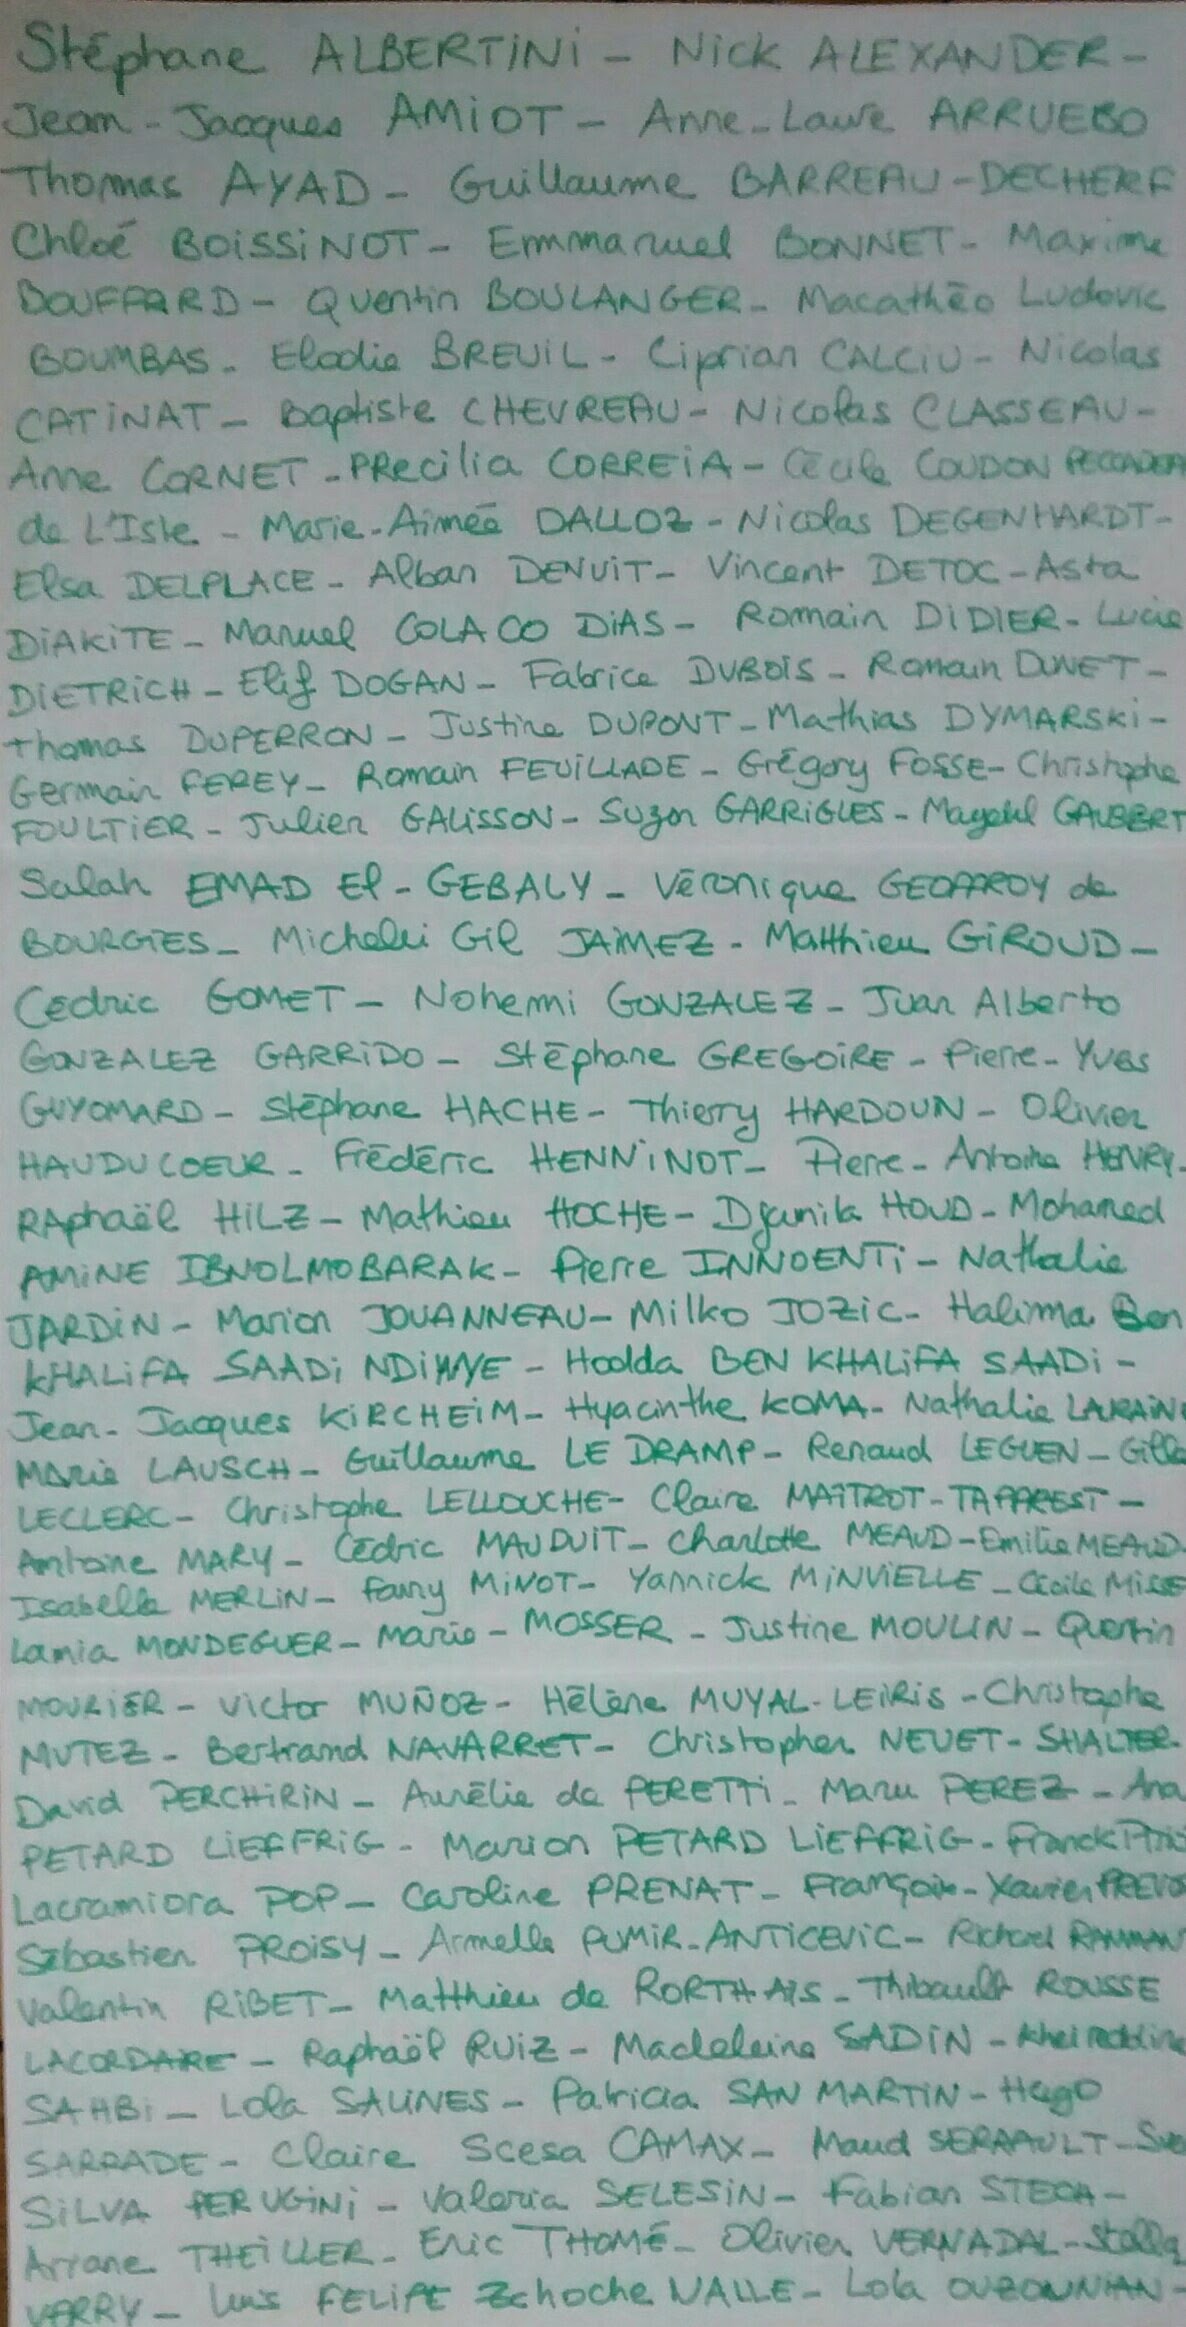 Stéphane ALBERTINI - Nick ALEXANDER -
Jean - Jacques AMIOT - Anne-Laure ARRUEBO
Thomas AYAD - Guillaume BARREAU-DECHERF
Chloé BOISSINOT - Emmanuel BONNET - Maxime
BOUFFARD - Quentin BOULANGER - Macathéo Ludovic
BOUMBAS - Elodie BREUIL - Ciprian CALCIU - Nicolas
CATINAT - Baptiste CHEVREAU - Nicolas CLASSEAU -
Anne CORNET - PRecilia CORREIA - Cécile COUDON
de L'Isle - Marie-Aimée DALLOZ - Nicolas DEGENHARDT -
Elsa DELPLACE - Alban DENUIT - Vincent DETOC - Asta
DIAKITE - Manuel COLACO DIAS - Romain DIDIER - Lucie
DIETRICH - Elif DOGAN - Fabrice DUBOIS - Romain DUNET -
Thomas DUPERRON - Justine DUPONT - Mathias DYMARSKI -
Germain FEREY - Romain FEUILLADE - Grégory FOSSE - Christophe
FOULTIER - Julien GALISSON - Suzon GARRIGLES - GAUBERT
Salah EMAD El - GEBALY - Véronique GEOFFROY de
BOURGIES - Michelli Gil JAIMEZ - Matthieu GIROUD -
Cédric GOMET - Nohemi GONZALEZ - Juan Alberto
GONZALEZ GARRIDO - Stéphane GREGOIRE - Pierre-Yves
GUYOMARD - Stéphane HACHE - Thierry HARDOUN - Olivier
HAUDUCOEUR - Frédéric HENNINOT - Pierre-Antoine HENRY -
RAphaël HILZ - Mathieu HOCHE - Djamila HOUD - Mohamed
AMINE IBNOLMOBARAK - Pierre INNOENTI - Nathalie
JARDIN - Marion JOUANNEAU - Milko JOZIC - Halima Ben
KHALIFA SAADI NDIAYE - Hodda BEN KHALIFA SAADI -
Jean-Jacques KIRCHEIM - Hyacinthe KOMA - Nathalie LAURAIN
Marie LAUSCH - Guillaume LE DRAMP - Renaud LEGUEN - Gille
LECLERC - Christophe LELLOUCHE - Claire MAITROT-TAPPREST -
Antoine MARY - Cédric MAUDUIT - Charlotte MEAUD - Emilie MEAUD -
Isabelle MERLIN - Fanny MINOT - Yannick MINVIELLE - Cécile MISSE
Lamia MONDEGUER - Marie - MOSSER - Justine MOULIN - Quentin
MOURIER - Victor MUÑOZ - Hélène MUYAL-LEIRIS - Christophe
MUTEZ - Bertrand NAVARRET - Christopher NEUET-SHALTER -
David PERCHIRIN - Aurélie de PERETTI - Manu PEREZ - Ana
PETARD LIEFFRIG - Marion PETARD LIEFFRIG - Franck
Lacramiora POP - Caroline PRENAT - François-Xavier PREVO
Sébastien PROISY - Armelle PUMIR-ANTICEVIC - Richard RAMMAN
Valentin RIBET - Matthieu de RORTHAIS - Thibault ROUSSE
LACORDAIRE - Raphaël RUIZ - Madeleine SADIN - Kheireddine
SAHBI - Lola SALINES - Patricia SAN MARTIN - Hugo
SARRADE - Claire Scesa CAMAX - Maud SERAAULT - Sve
SILVA PERUGINI - Valeria SELESIN - Fabian STECH -
Aryane THEILLER - Eric THOMÉ - Olivier VERNADAL - Stella
VERRY - Luis FELIPE Zchoche VALLE - Lola OUZOUNIAN -